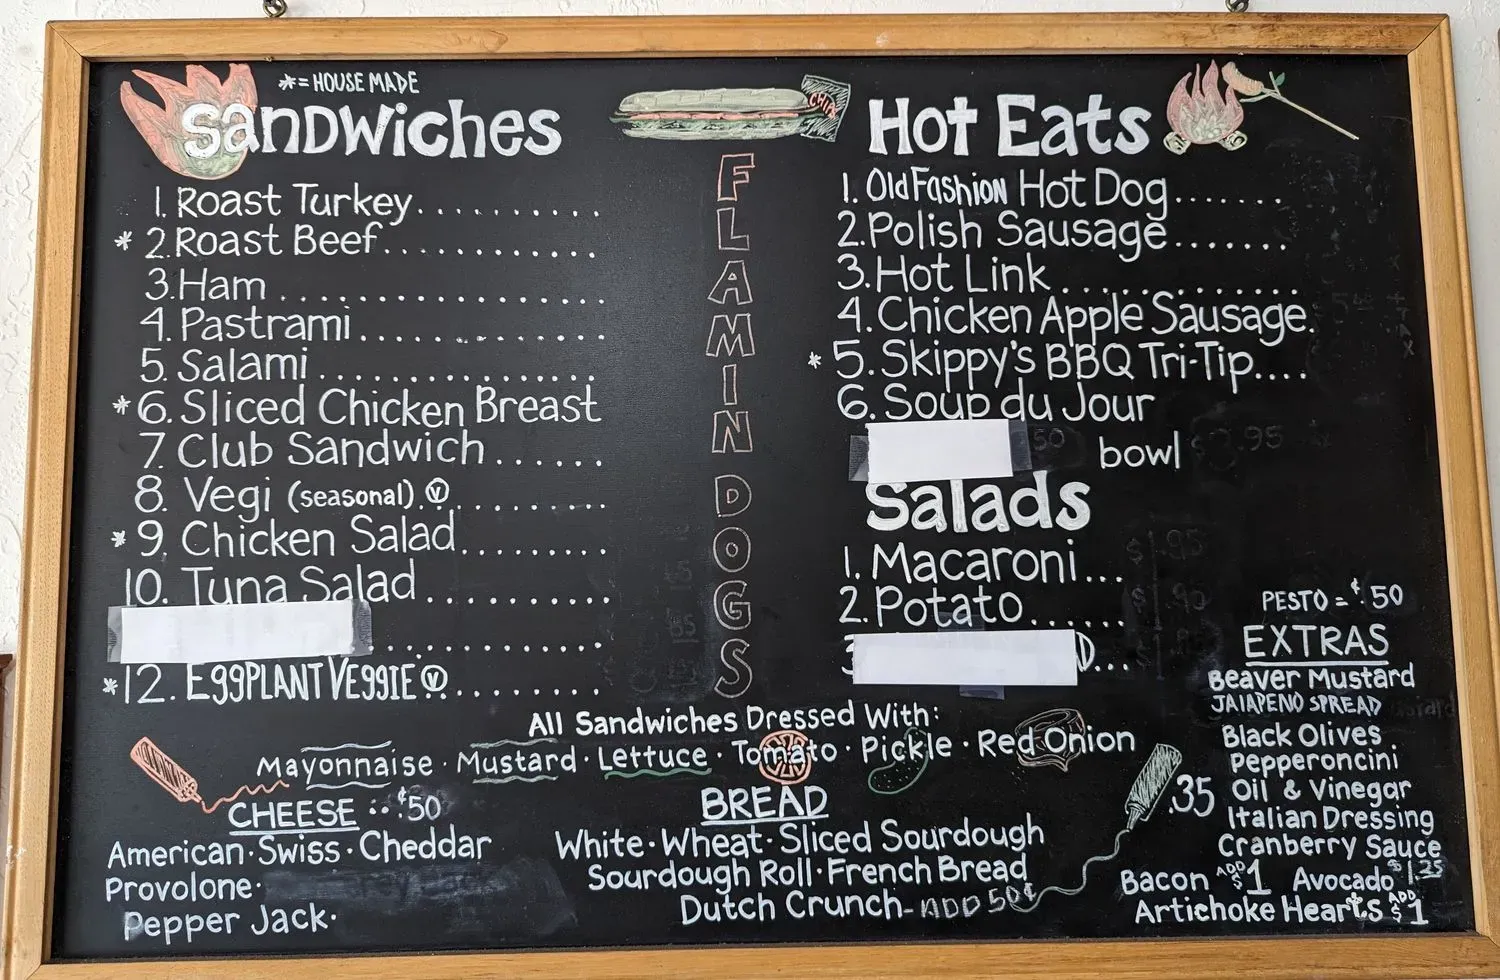 *= HOUSE MADE
Sandwiches
1. Roast Turkey..........
* 2. Roast Beef............
3. Ham................
4. Pastrami.............
5. Salami...............
* 6. Sliced Chicken Breast
7. Club Sandwich......
8. Vegi (seasonal). Ⓥ.........
* 9. Chicken Salad.........
10. Tuna Salad..........
* 12. EggPLANT VEggIE Ⓥ.........
CHIPS
FLAMIN DOGS
Hot Eats
1. Old Fashion Hot Dog.......
2. Polish Sausage.......
3. Hot Link.............
4. Chicken Apple Sausage.
* 5. Skippy's BBQ Tri-Tip....
6. Soup du Jour
bowl
Salads
1. Macaroni...
2. Potato......
All Sandwiches Dressed With:
Mayonnaise · Mustard · Lettuce · Tomato · Pickle · Red Onion
CHEESE :: $.50
American · Swiss · Cheddar
Provolone ·
Pepper Jack ·
BREAD
White · Wheat · Sliced Sourdough
Sourdough Roll · French Bread
Dutch Crunch - ADD 50¢
PESTO = $.50
EXTRAS
Beaver Mustard
JALAPENO SPREAD
Black Olives
Pepperoncini
.35 Oil & Vinegar
Italian Dressing
Cranberry Sauce
Bacon ADD $1 Avocado $1.25
Artichoke Hearts ADD $1